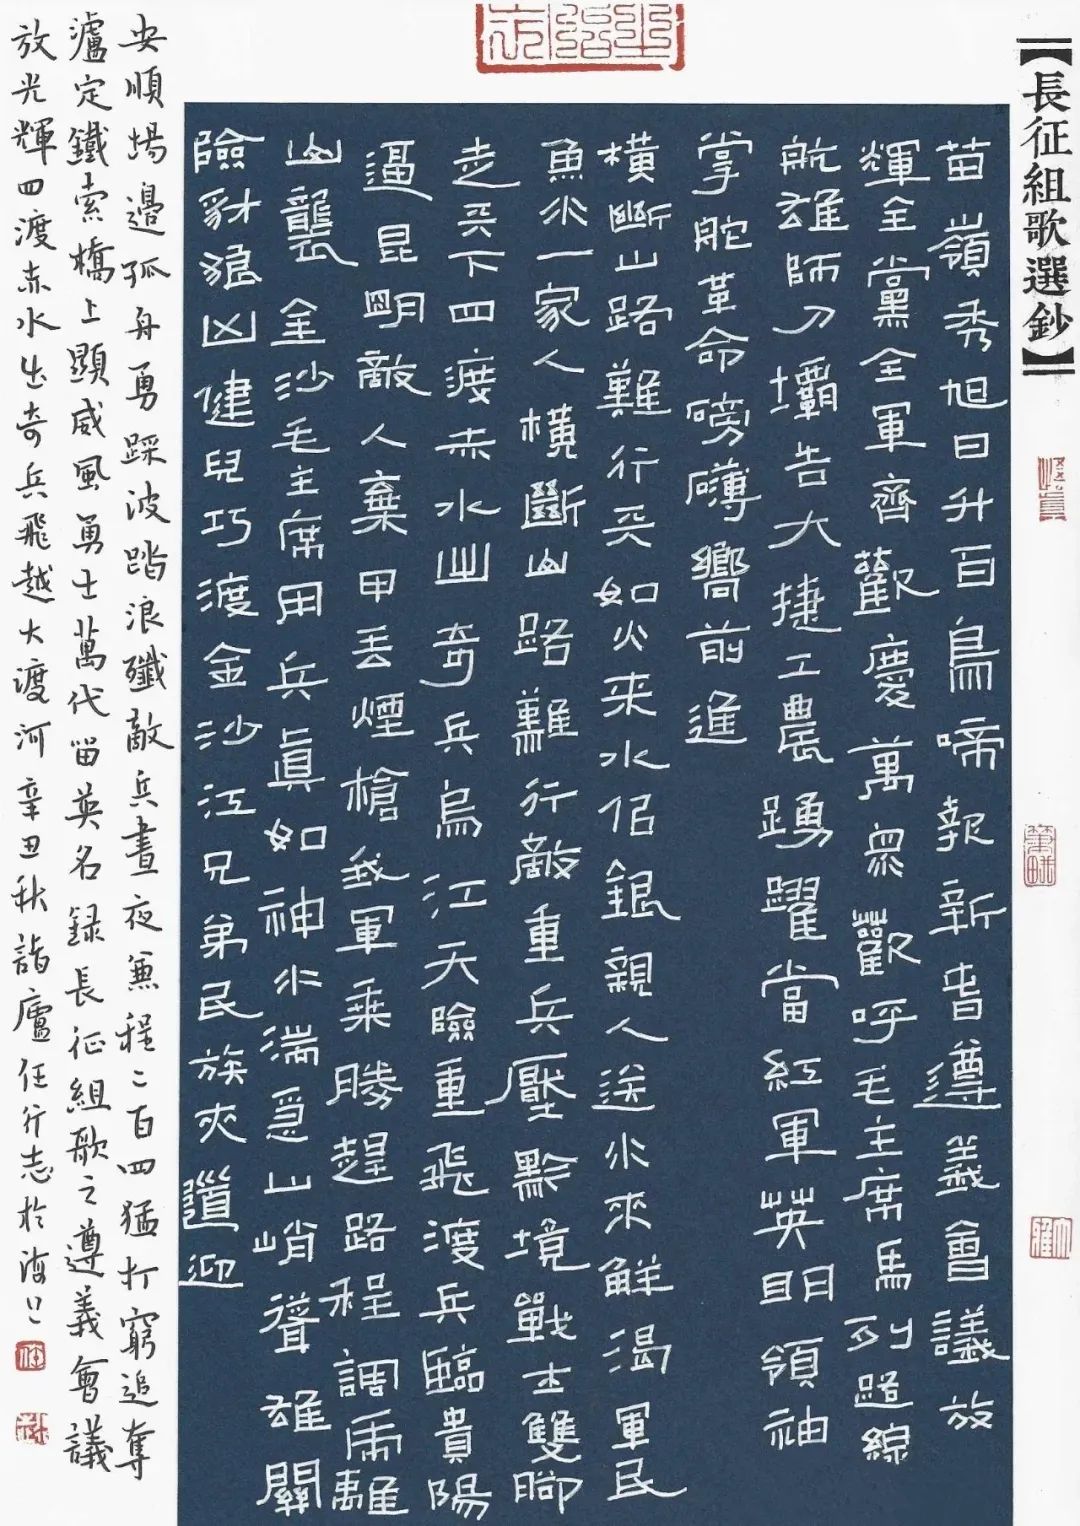 【長征組歌選鈔】
苗嶺秀旭日升百鳥啼報新春遵義會議放
輝全黨全軍齊歡慶萬眾歡呼毛主席馬列路線
航雄師刀壩告大捷工農踴躍當紅軍英明領袖
掌舵革命磅礴嚮前進
橫斷山路難行天如火來水似銀親人送水來解渴軍民
魚水一家人橫斷山路難行敵重兵壓黔境戰士雙腳
走天下四渡赤水出奇兵烏江天險重飛渡兵臨貴陽
逼昆明敵人棄甲丟煙槍我軍乘勝趕路程調虎離
山襲金沙毛主席用兵真如神水湍急山峭聳雄關
險豺狼凶健兒巧渡金沙江兄弟民族夾道迎
安順場邊孤舟勇踩波踏浪殲敵兵晝夜兼程二百四猛打窮追奪
瀘定鐵索橋上顯威風勇士萬代留英名錄長征組歌之遵義會議
放光輝四渡赤水出奇兵飛越大渡河辛丑秋詣廬任行志於海上